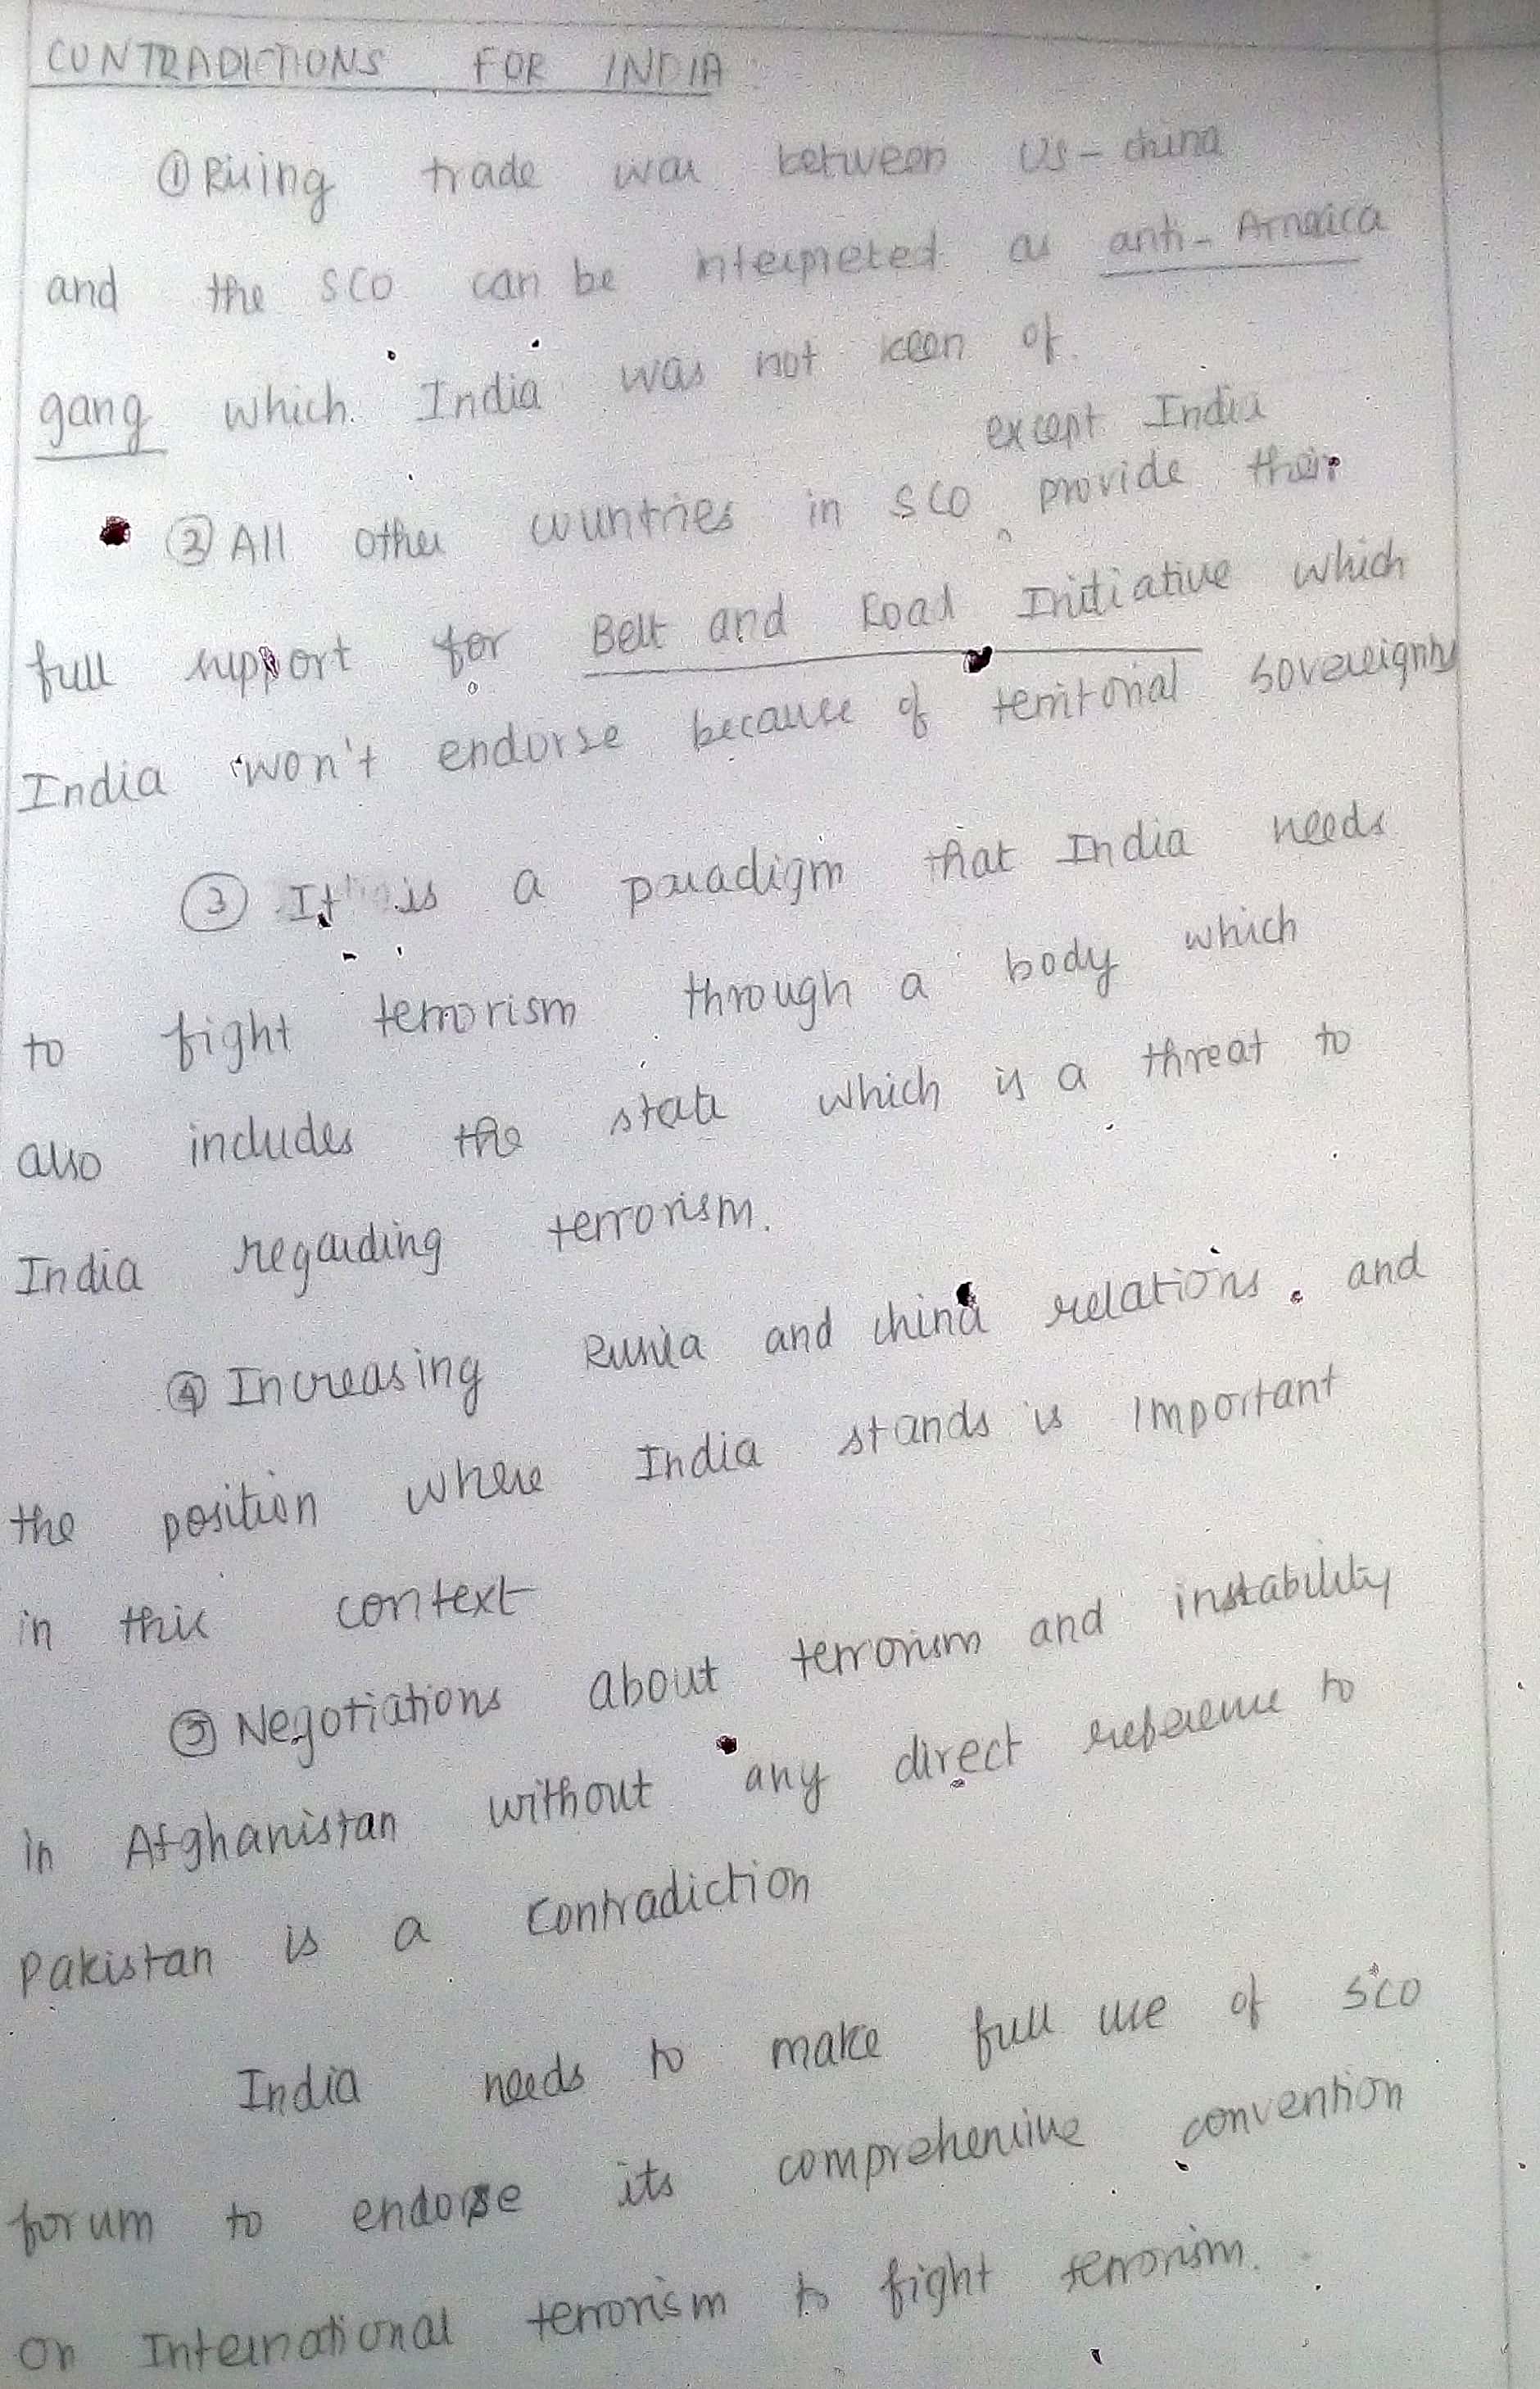 CONTRADICTIONS FOR INDIA
① Rising trade war between US - china
and the SCO can be interpreted as anti - America
gang which India was not keen of.
except India
② All other countries in SCO ^ provide their
full support for Belt and Road Initiative which
India won't endorse because of territorial sovereignty
③ It is a paradigm that India needs
to fight terrorism through a body which
also includes the state which is a threat to
India regarding terrorism.
④ Increasing Russia and china relations. and
the position where India stands is important
in this context
⑤ Negotiations about terrorism and instability
in Afghanistan without any direct reference to
Pakistan is a contradiction
India needs to make full use of SCO
forum to endorse its comprehensive convention
on International terrorism to fight terrorism.